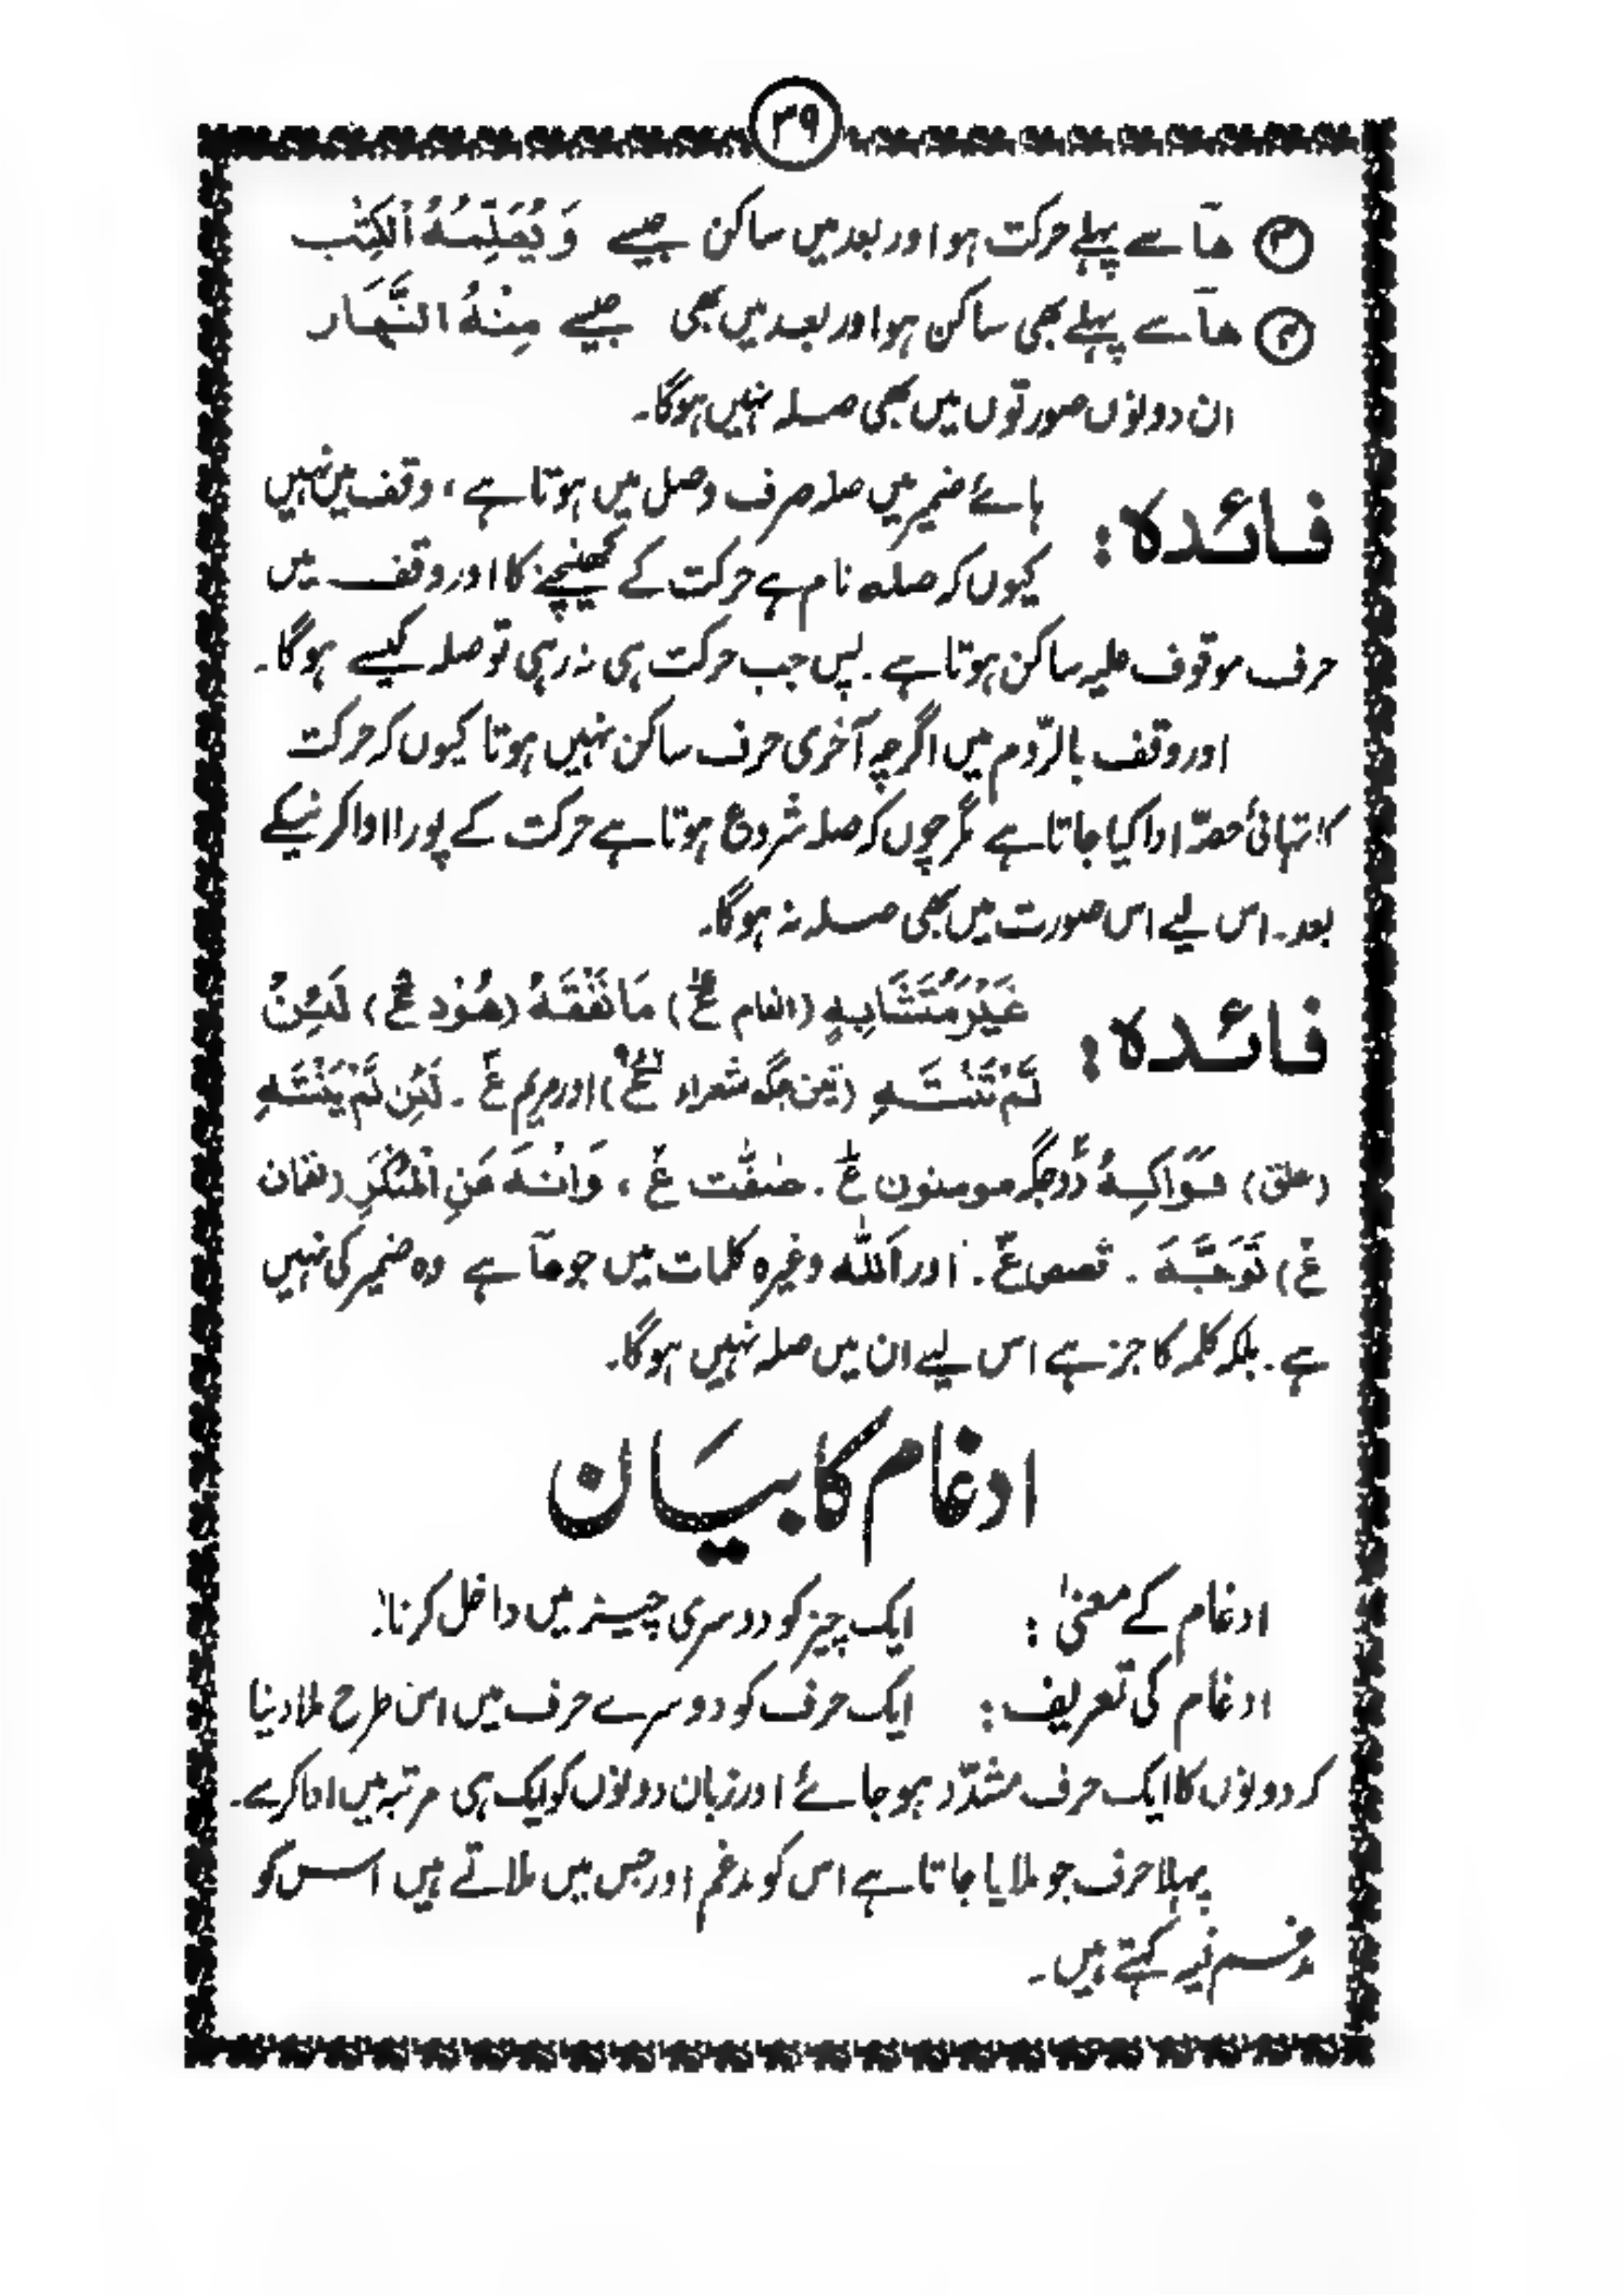 ۳۹
③ ھآ سے پہلے حرکت ہو اور بعد میں ساکن جیسے وَ یُعَلِّمُہُ الْکِتٰب
④ ھآ سے پہلے بھی ساکن ہو اور بعد میں بھی جیسے مِنْہُ النَّھَار
ان دونوں صورتوں میں بھی صلہ نہیں ہوگا۔
فائدہ: ہائے ضمیر میں صلہ صرف وصل میں ہوتا ہے، وقف میں نہیں
کیوں کہ صلہ نام ہے حرکت کے کھینچنے کا اور وقف میں
حرف موقوف علیہ ساکن ہوتا ہے۔ پس جب حرکت ہی نہ رہی تو صلہ کیسے ہوگا۔
اور وقف بالرّوم میں اگرچہ آخری حرف ساکن نہیں ہوتا کیوں کہ حرکت
کا تہائی حصّہ ادا کیا جاتا ہے مگر چوں کہ صلہ شروع ہوتا ہے حرکت کے پورا ادا کرنیکے
بعد۔ اس لیے اس صورت میں بھی صلہ نہ ہوگا۔
فائدہ: غَیْرَ مُتَشَابِہٍ (انعام ع) مَا نَفْقَہُ (ھُوْد ع) لَئِنْ
لَّمْ تَنْتَہِ (تین جگہ شعراء ع) اور مریم ع ۔ لَئِن لَّمْ یَنْتَہِ
(علق) فَوَاکِہُ دو جگہ مومنون ع ۔ صٰفّٰت ع ، وَانْہَ عَنِ الْمُنْکَرِ (لقمان
ع) تَوَجَّہَ ۔ قصص ع ۔ اور اَللّٰہ وغیرہ کلمات میں جو ھآ ہے وہ ضمیر کی نہیں
ہے۔ بلکہ کلمہ کا جز ہے اس لیے ان میں صلہ نہیں ہوگا۔
ادغام کا بیَان
ادغام کے معنیٰ : ایک چیز کو دوسری چیز میں داخل کرنا۔
ادغام کی تعریف : ایک حرف کو دوسرے حرف میں اس طرح ملا دینا
کہ دونوں کا ایک حرف مشدّد ہو جائے اور زبان دونوں کو ایک ہی مرتبہ میں ادا کرے۔
پہلا حرف جو ملایا جاتا ہے اس کو مدغم اور جس میں ملاتے ہیں اس کو
مدغم فیہ کہتے ہیں۔